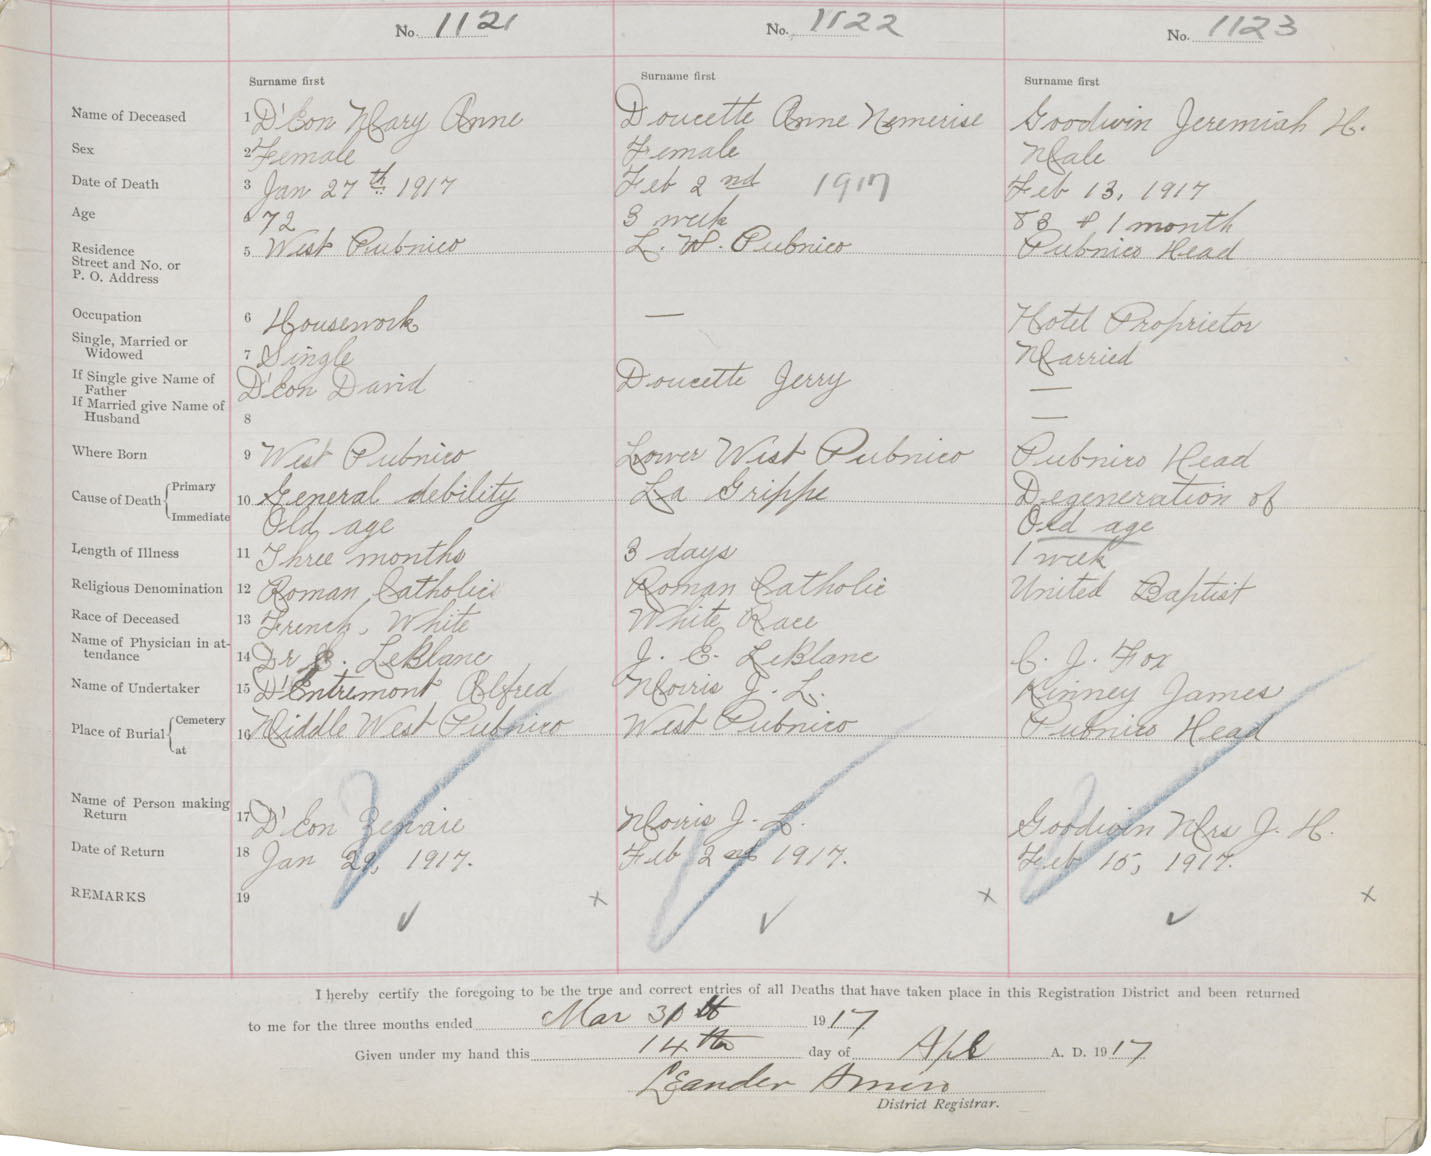 No. 1121 No. 1122 No. 1123
Surname first Surname first Surname first
Name of Deceased 1 D'Eon Mary Anne Doucette Anne Nemerise Goodwin Jeremiah H.
Sex 2 Female Female Male
Date of Death 3 Jan 27th 1917 Feb 2nd 1917 Feb 13, 1917
Age 4 72 3 week 83 & 1 month
Residence
Street and No. or 5 West Pubnico L. W. Pubnico Pubnico Head
P. O. Address
Occupation 6 Housework — Hotel Proprietor
Single, Married or
Widowed 7 Single Married
If Single give Name of
Father D'Eon David Doucette Jerry —
If Married give Name of
Husband 8 —
Where Born 9 West Pubnico Lower West Pubnico Pubnico Head
Cause of Death { Primary 10 General debility La Grippe Degeneration of
Immediate Old age Old age
Length of Illness 11 Three months 3 days 1 week
Religious Denomination 12 Roman Catholic Roman Catholic United Baptist
Race of Deceased 13 French, White White Race
Name of Physician in at-
tendance 14 Dr LeBlanc J. E. LeBlanc C. J. Fox
Name of Undertaker 15 D'Entremont Alfred Moiris J. L. Kinney James
Place of Burial { Cemetery 16 Middle West Pubnico West Pubnico Pubnico Head
at
Name of Person making
Return 17 D'Eon Moiris J. L. Goodwin Mrs J. H.
Date of Return 18 Jan 29, 1917. Feb 2nd 1917. Feb 15, 1917.
REMARKS 19 x x x
I hereby certify the foregoing to be the true and correct entries of all Deaths that have taken place in this Registration District and been returned
to me for the three months ended Mar 31th 1917
Given under my hand this 14th day of Apl A. D. 1917
LEander Amiro
District Registrar.